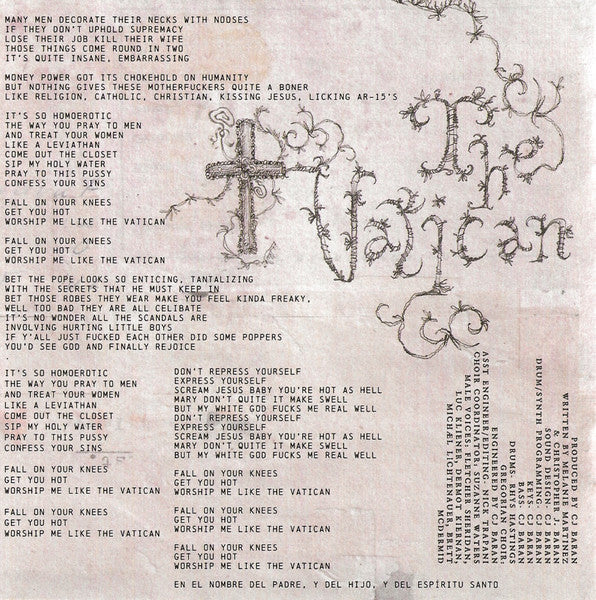 MANY MEN DECORATE THEIR NECKS WITH NOOSES
IF THEY DON'T UPHOLD SUPREMACY
LOSE THEIR JOB KILL THEIR WIFE
THOSE THINGS COME ROUND IN TWO
IT'S QUITE INSANE, EMBARRASSING
MONEY POWER GOT ITS CHOKEHOLD ON HUMANITY
BUT NOTHING GIVES THESE MOTHERFUCKERS QUITE A BONER
LIKE RELIGION, CATHOLIC, CHRISTIAN, KISSING JESUS, LICKING AR-15'S
IT'S SO HOMOEROTIC
THE WAY YOU PRAY TO MEN
AND TREAT YOUR WOMEN
LIKE A LEVIATHAN
COME OUT THE CLOSET
SIP MY HOLY WATER
PRAY TO THIS PUSSY
CONFESS YOUR SINS
FALL ON YOUR KNEES
GET YOU HOT
WORSHIP ME LIKE THE VATICAN
FALL ON YOUR KNEES
GET YOU HOT
WORSHIP ME LIKE THE VATICAN
The
Vatican
BET THE POPE LOOKS SO ENTICING, TANTALIZING
WITH THE SECRETS THAT HE MUST KEEP IN
BET THOSE ROBES THEY WEAR MAKE YOU FEEL KINDA FREAKY,
WELL TOO BAD THEY ARE ALL CELIBATE
IT'S NO WONDER ALL THE SCANDALS ARE
INVOLVING HURTING LITTLE BOYS
IF Y'ALL JUST FUCKED EACH OTHER DID SOME POPPERS
YOU'D SEE GOD AND FINALLY REJOICE
IT'S SO HOMOEROTIC
THE WAY YOU PRAY TO MEN
AND TREAT YOUR WOMEN
LIKE A LEVIATHAN
COME OUT THE CLOSET
SIP MY HOLY WATER
PRAY TO THIS PUSSY
CONFESS YOUR SINS
FALL ON YOUR KNEES
GET YOU HOT
WORSHIP ME LIKE THE VATICAN
FALL ON YOUR KNEES
GET YOU HOT
WORSHIP ME LIKE THE VATICAN
DON'T REPRESS YOURSELF
EXPRESS YOURSELF
SCREAM JESUS BABY YOU'RE HOT AS HELL
MARY DON'T QUITE IT MAKE SWELL
BUT MY WHITE GOD FUCKS ME REAL WELL
DON'T REPRESS YOURSELF
EXPRESS YOURSELF
SCREAM JESUS BABY YOU'RE HOT AS HELL
MARY DON'T QUITE IT MAKE SWELL
BUT MY WHITE GOD FUCKS ME REAL WELL
FALL ON YOUR KNEES
GET YOU HOT
WORSHIP ME LIKE THE VATICAN
FALL ON YOUR KNEES
GET YOU HOT
WORSHIP ME LIKE THE VATICAN
FALL ON YOUR KNEES
GET YOU HOT
WORSHIP ME LIKE THE VATICAN
EN EL NOMBRE DEL PADRE, Y DEL HIJO, Y DEL ESPÍRITU SANTO
PRODUCED BY CJ BARAN
WRITTEN BY MELANIE MARTINEZ
& CHRISTOPHER J. BARAN
SOUND DESIGN: CJ BARAN
DRUM/SYNTH PROGRAMMING: CJ BARAN
KEYS: CJ BARAN
BASS: CJ BARAN
DRUMS: RHYS HASTINGS
GREGORIAN CHOIR:
ENGINEERED BY CJ BARAN
ASST ENGINEER/EDITING: NICK TRAPANI
CHOIR COORDINATOR: SUZANNE WATERS
MALE VOICES: FLETCHER SHERIDAN,
LUC KLIENER, DERMOT KIERNAN,
MICHÆL LICHTENAUER, BRETT
MCDERMID